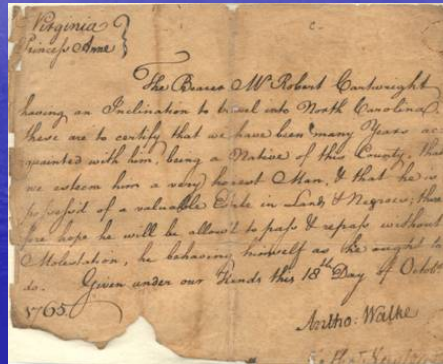 Virginia
Princess Anne
The Bearer Mr. Robert Cartwright
having an Inclination to travel into North Carolina
these are to certify that we have been many Years ac
quainted with him, being a Native of this County, that
we esteem him a very honest Man, & that he is
possess'd of a valuable Estate in Lands & Negroes; there
fore hope he will be allow'd to pass & repass without
Molestation, he behaving himself as he ought to
do. Given under our Hands this 18th Day of Octobr
1765.
Antho: Walke